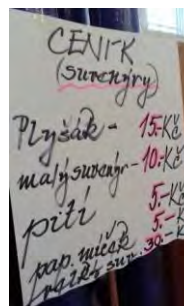 CENÍK
(suvenýry)
Plyšák - 15.-Kč
malý suvenýr - 10.-Kč
pití 5.-Kč
pap. míček 5.-K
sur. 30.-K